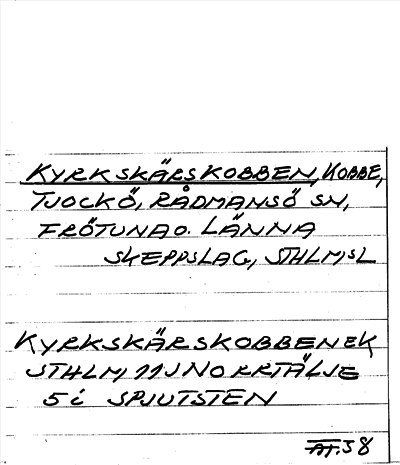 KYRKSKÄRSKOBBEN, KOBBE,
TJOCKÖ, RÅDMANSÖ SN,
FRÖTUNA O. LÄNNA
SKEPPSLAG, STHLM,SL
KYRKSKÄRSKOBBEN EK
STHLM, 11J NORRTÄLJE
5i SPJUTSTEN
AT.58